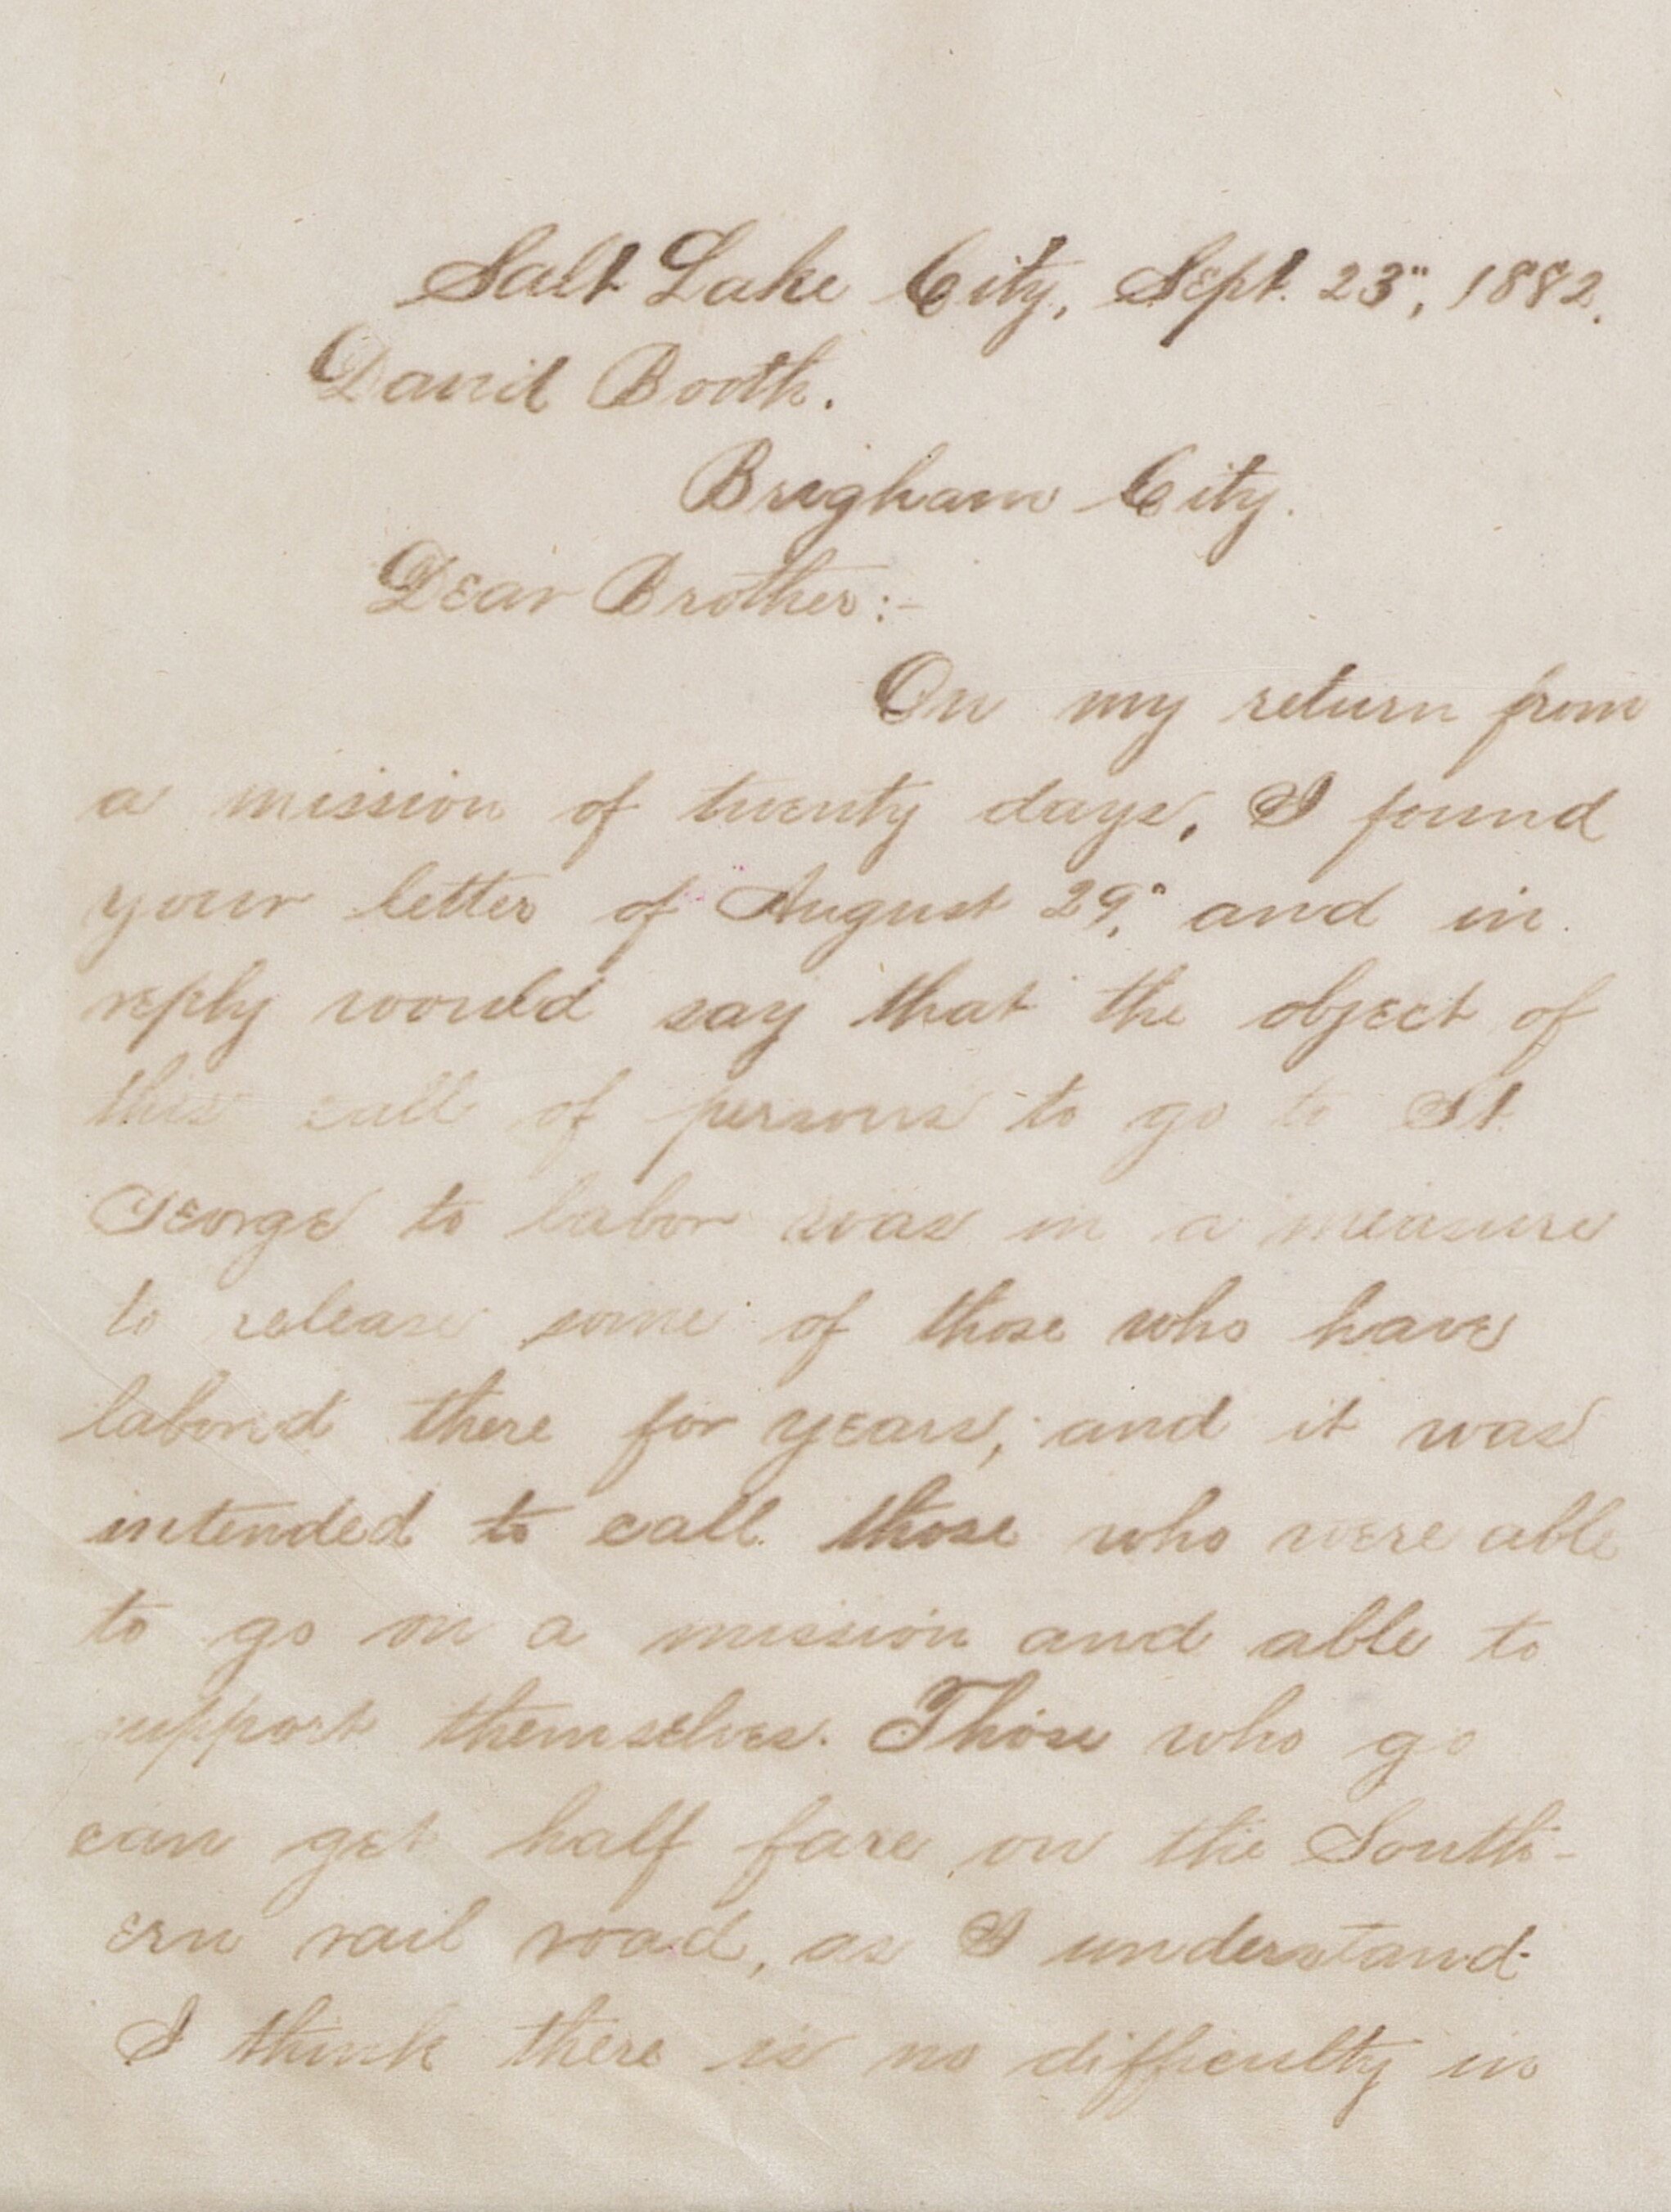 Salt Lake City, Sept. 23", 1882.
David Booth.
Brigham City.
Dear Brother:-
On my return from
a mission of twenty days, I found
your letter of August 29," and in
reply would say that the object of
this call of persons to go to St.
George to labor was in a measure
to release some of those who have
labord there for years; and it was
intended to call those who were able
to go on a mission and able to
support themselves. Those who go
can get half fare on the South-
ern rail road, as I understand.
I think there is no difficulty in